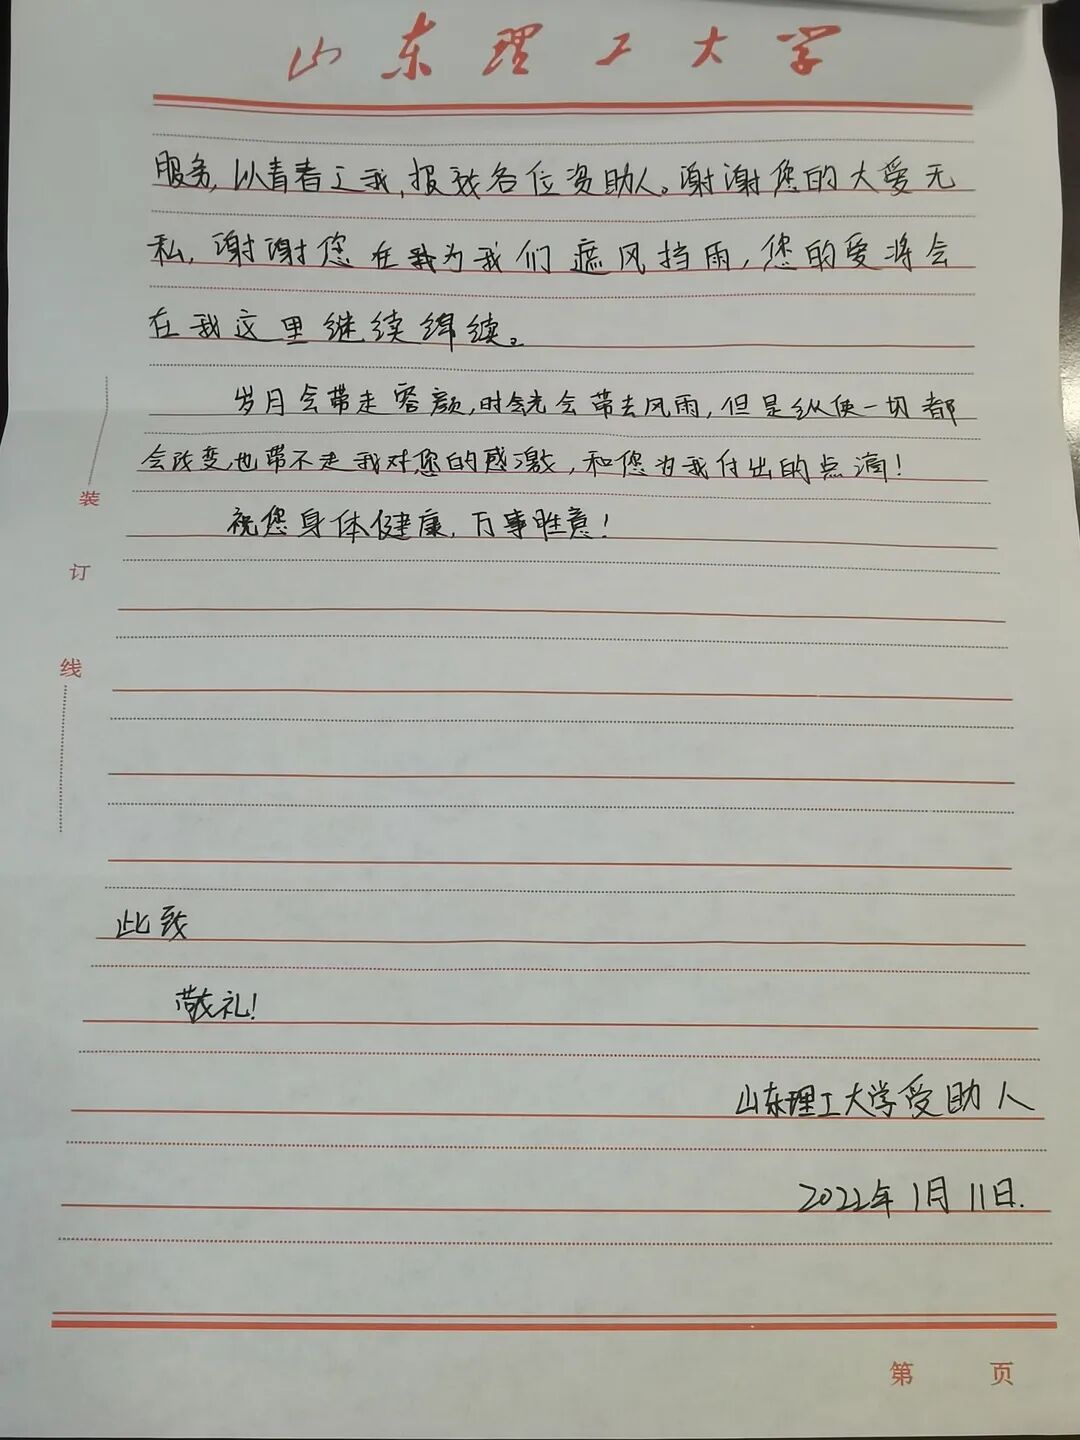 山东理工大学
服务，以青春之我，报效各位资助人。谢谢您的大爱无
私，谢谢您在我为我们遮风挡雨，您的爱将会
在我这里继续绵续。
岁月会带走容颜，时光会带去风雨，但是纵使一切都
会改变，也带不走我对您的感激，和您为我付出的点滴！
祝您身体健康，万事胜意！
装
订
线
此致
敬礼！
山东理工大学受助人
2022年1月11日.
第 页